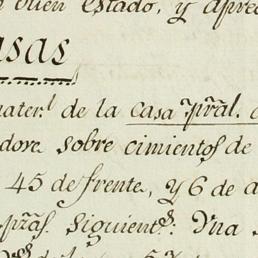 buen estado, y apre
asas
mater.l de la casa pral.
dora sobre cimientos de
45 de frente, y 6 de
pras. siguientes: Una